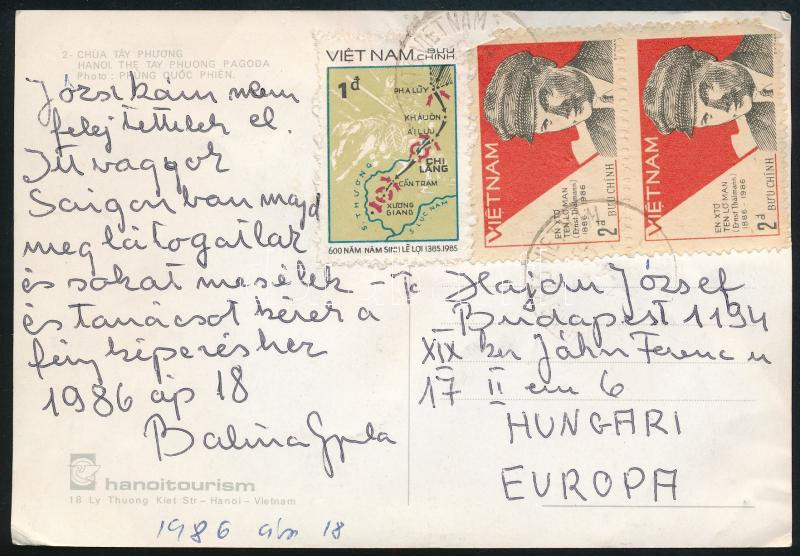 2- CHÙA TÂY PHƯƠNG
HANOI, THE TAY PHUONG PAGODA
Photo : PHÙNG QUỐC PHIÊN.
Józsikám nem
felejtettelek el.
Itt vagyok
Saigonban majd
meglátogatlak
és sokat mesélek -
és tanácsot kérek a
fényképezéshez
1986 áp 18
Balina Gyula
hanoitourism
18 Ly Thuong Kiet Str - Hanoi - Vietnam
1986 ápr 18
VIỆT NAM BƯU CHÍNH
1đ
PHA LŨY
KHÂU ÔN
ẢI LƯU
CHI LĂNG
CẦN TRẠM
XƯƠNG GIANG
S. THƯƠNG
S. LỤC NAM
600 NĂM NĂM SINH LÊ LỢI 1385.1985
VIỆT NAM
EN XTƠ
TEN LƠ MAN
(Ernst Thälmann)
1886 - 1986
2đ BƯU CHÍNH
VIỆT NAM
EN XTƠ
TEN LƠ MAN
(Ernst Thälmann)
1886 - 1986
2đ BƯU CHÍNH
VIETNAM
Hajdu József
Budapest 1194
XIX ker Jáhn Ferenc u
17 II em 6
HUNGARI
EUROPA